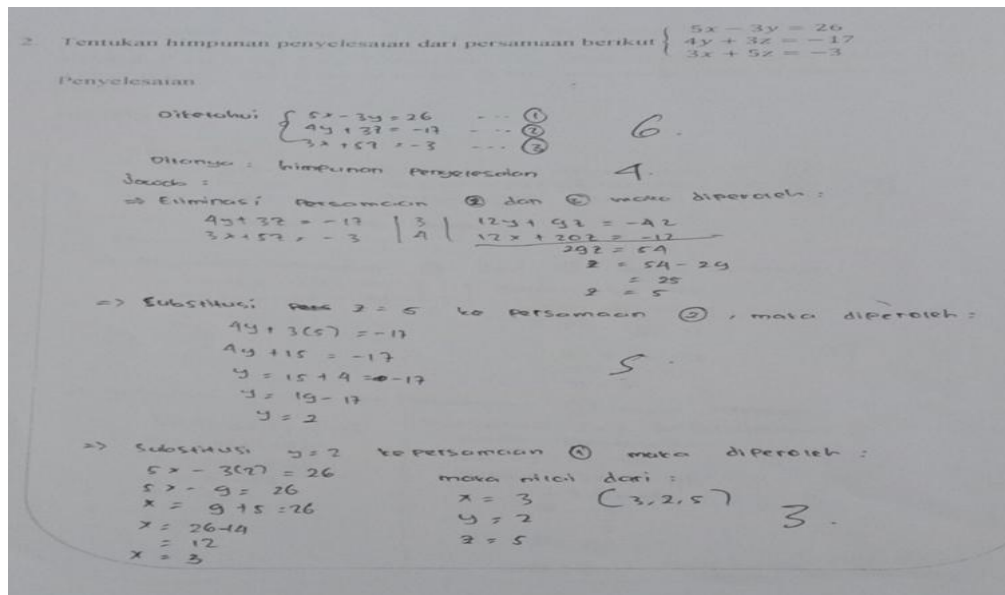 2. Tentukan himpunan penyelesaian dari persamaan berikut { 5x − 3y = 26
4y + 3z = −17
3x + 5z = −3
Penyelesaian
Diketahui { 5x − 3y = 26 --- ①
4y + 3z = −17 --- ②
3x + 5z = −3 --- ③
6.
Ditanya : himpunan penyelesaian
4.
Jawab :
=> Eliminasi persamaan dan maka diperoleh :
4y + 3z = −17 | 3 | 12y + 9z = −42
3x + 5z = −3 | 4 | 12x + 20z = −12
29z = 54
z = 54 − 29
= 25
z = 5
=> Substitusi z = 5 ke persamaan ②, maka diperoleh :
4y + 3(5) = −17
4y + 15 = −17
y = 15 + 4 = −17
y = 19 − 17
y = 2
5.
=> Substitusi y = 2 ke persamaan ① maka diperoleh :
5x − 3(2) = 26
5x − 9 = 26
x = 9 + 5 = 26
x = 26 − 14
= 12
x = 3
maka nilai dari :
x = 3 (3, 2, 5)
y = 2
z = 5
3.